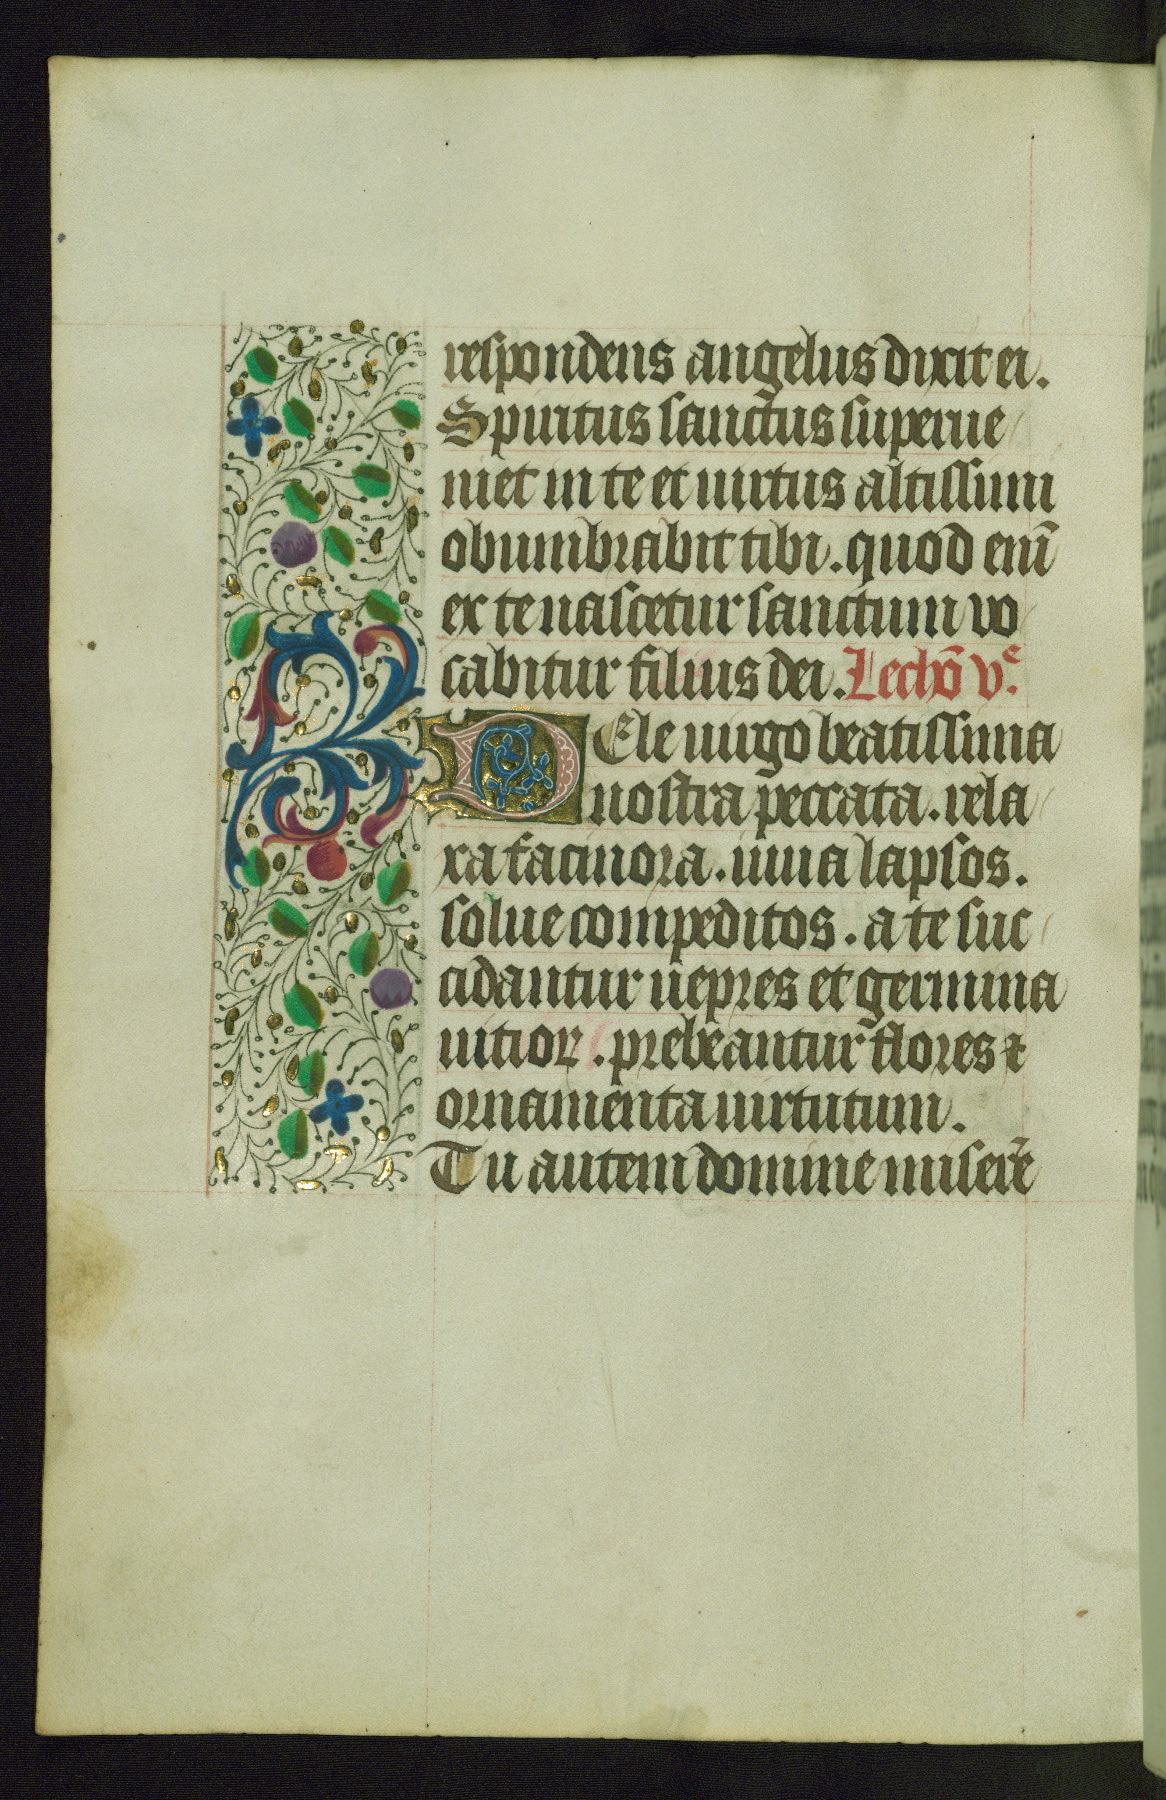 respondens angelus dixit ei.
Spiritus sanctus superue
niet in te et uirtus altissimi
obumbrabit tibi. quod enī
ex te nascetur sanctum vo
cabitur filius dei. Lectiō vͤ.
DEle uirgo beatissima
nostra peccata. rela
xa facinora. iuua lapsos.
solue compeditos. a te suc
cidantur uepres et germina
uitioꝝ. prebeantur flores ⁊
ornamenta uirtutum.
Tu autem domine miserē